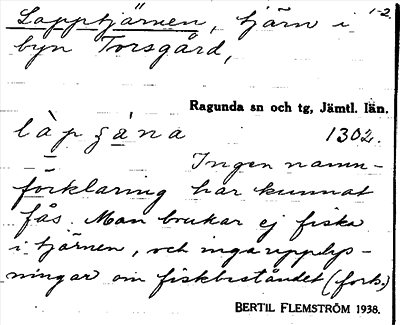 Lapptjärnen, tjärn i 1-2.
byn Torsgård,
Ragunda sn och tg, Jämtl. län.
làpʒäna 1302.
Ingen namn-
förklaring har kunnat
fås. Man brukar ej fiska
i tjärnen, och inga upplys-
ningar om fiskbeståndet (forts.)
BERTIL FLEMSTRÖM 1938.